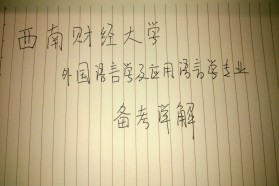 西南财经大学
外国语言学及应用语言学专业
备考详解